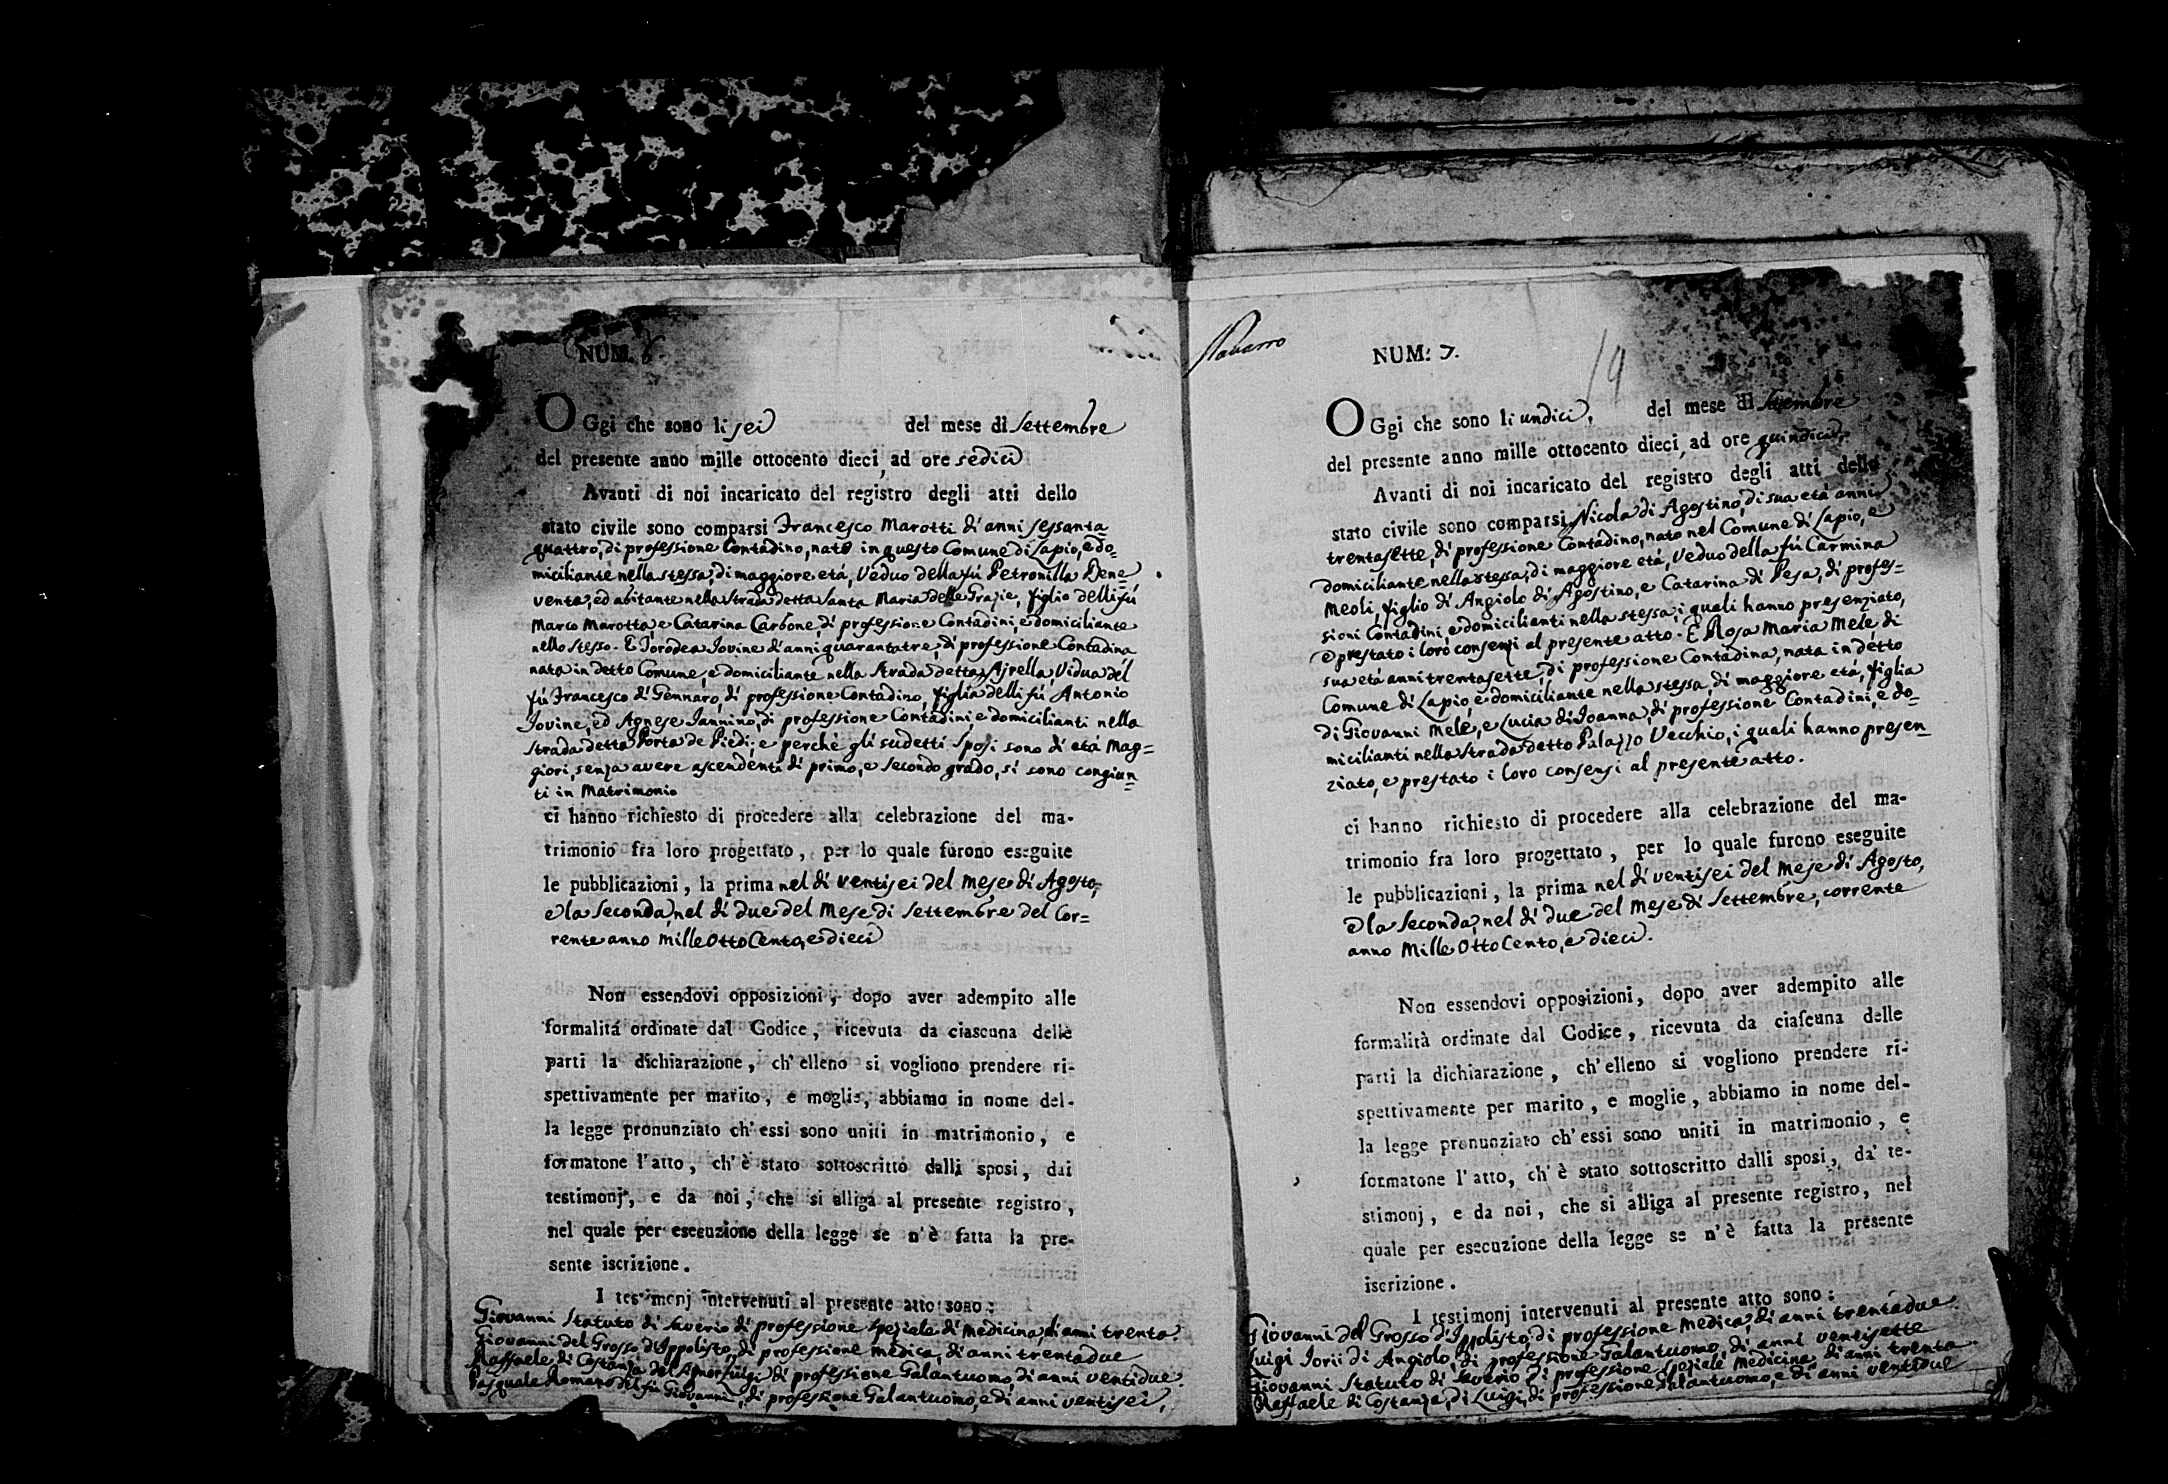 NUM. 6.
OGgi che sono li sei del mese di Settembre
del presente anno mille ottocento dieci, ad ore sedici
Avanti di noi incaricato del registro degli atti dello
stato civile sono comparsi Francesco Marotti di anni sessanta
quattro, di professione Contadino, nato in questo Comune di Lapio, e do=
miciliante nella stessa, di maggiore etá, Veduo della fú Petronilla Bene=
vento, ed abitante nella Strada detta Santa Maria delle Grazie, figlio delli fú
Marco Marotta, e Catarina Carbone, di professione Contadini, e domiciliante
nello stesso. E Torodea Iovine d'anni quarantatre, di professione Contadina
nata in detto Comune, e domiciliante nella Strada detta Ajrella, Vidua del
fú Francesco di Gennaro, di professione Contadino, figlia delli fú Antonio
Iovine, ed Agnese Iannino, di professione Contadini, e domicilianti nella
Strada detta Porta de Piedi; e perchè gli sudetti Sposi sono di etá Mag=
giori, senza avere ascendenti di primo, e secondo grado, si sono congiun=
ti in Matrimonio
ci hanno richiesto di procedere alla celebrazione del ma-
trimonio fra loro progettato, per lo quale furono eseguite
le pubblicazioni, la prima nel dí ventisei del Mese di Agosto,
e la Seconda, nel dí due del Mese di Settembre del Cor=
rente anno Mille Otto Cento, e dieci
Non essendovi opposizioni, dopo aver adempito alle
formalitá ordinate dal Codice, ricevuta da ciascuna delle
parti la dichiarazione, ch' elleno si vogliono prendere ri-
spettivamente per marito, e moglie, abbiamo in nome del-
la legge pronunziato ch' essi sono uniti in matrimonio, e
formatone l' atto, ch' è stato sottoscritto dalli sposi, dai
testimonj, e da noi, che si alliga al presente registro,
nel quale per esecuzione della legge se n' è fatta la pre-
sente iscrizione.
I testimonj intervenuti al presente atto sono:
Giovanni Statuto di Saverio di professione Speziale di Medicina, di anni trenta.
Giovanni del Grosso d'Ippolisto, di professione Medica, di anni trentadue
Raffaele di Costanza del Luigi di professione Galantuomo, di anni ventidue.
Pasquale Romano del fú Giovanni, di professione Galantuomo, e di anni ventisei,
Navarro
NUM: 7.
19
OGgi che sono li undici, del mese di Settembre
del presente anno mille ottocento dieci, ad ore quindici,
Avanti di noi incaricato del registro degli atti dello
stato civile sono comparsi Nicola di Agostino, di sua etá anni
trentasette, di professione Contadino, nato nel Comune di Lapio, e
domiciliante nella stessa, di maggiore etá, Veduo della fú Carmina
Meoli, figlio di Angiolo di Agostino, e Catarina di Pesa, di profes=
sioni Contadini, e domicilianti nella stessa, i quali hanno presenziato,
e prestato i loro consensi al presente atto. E Rosa Maria Mele di
sua etá anni trentasette, di professione Contadina, nata in detto
Comune di Lapio, e domiciliante nella stessa, di maggiore etá, figlia
di Giovanni Mele, e Lucia di Ioanna, di professione Contadini, e do=
micilianti nella Strada detto Palazzo Vecchio, i quali hanno presen=
ziato, e prestato i loro consensi al presente atto.
ci hanno richiesto di procedere alla celebrazione del ma-
trimonio fra loro progettato, per lo quale furono eseguite
le pubblicazioni, la prima nel dí ventisei del Mese di Agosto,
e la Seconda, nel dí due del Mese di Settembre, corrente
anno Mille Otto Cento, e dieci.
Non essendovi opposizioni, dopo aver adempito alle
formalità ordinate dal Codice, ricevuta da ciascuna delle
parti la dichiarazione, ch' elleno si vogliono prendere ri-
spettivamente per marito, e moglie, abbiamo in nome del-
la legge pronunziato ch' essi sono uniti in matrimonio, e
formatone l' atto, ch' è stato sottoscritto dalli sposi, da' te-
stimonj, e da noi, che si alliga al presente registro, nel
quale per esecuzione della legge se n' è fatta la presente
iscrizione.
I testimonj intervenuti al presente atto sono:
Giovanni del Grosso d'Ippolisto, di professione Medica, di anni trentadue.
Luigi Iorii di Angiolo, di professione Galantuomo, di anni ventisette
Giovanni Statuto di Saverio di professione Speziale Medicina, di anni trenta.
Raffaele di Costanza, di Luigi, di professione Galantuomo, e di anni ventidue